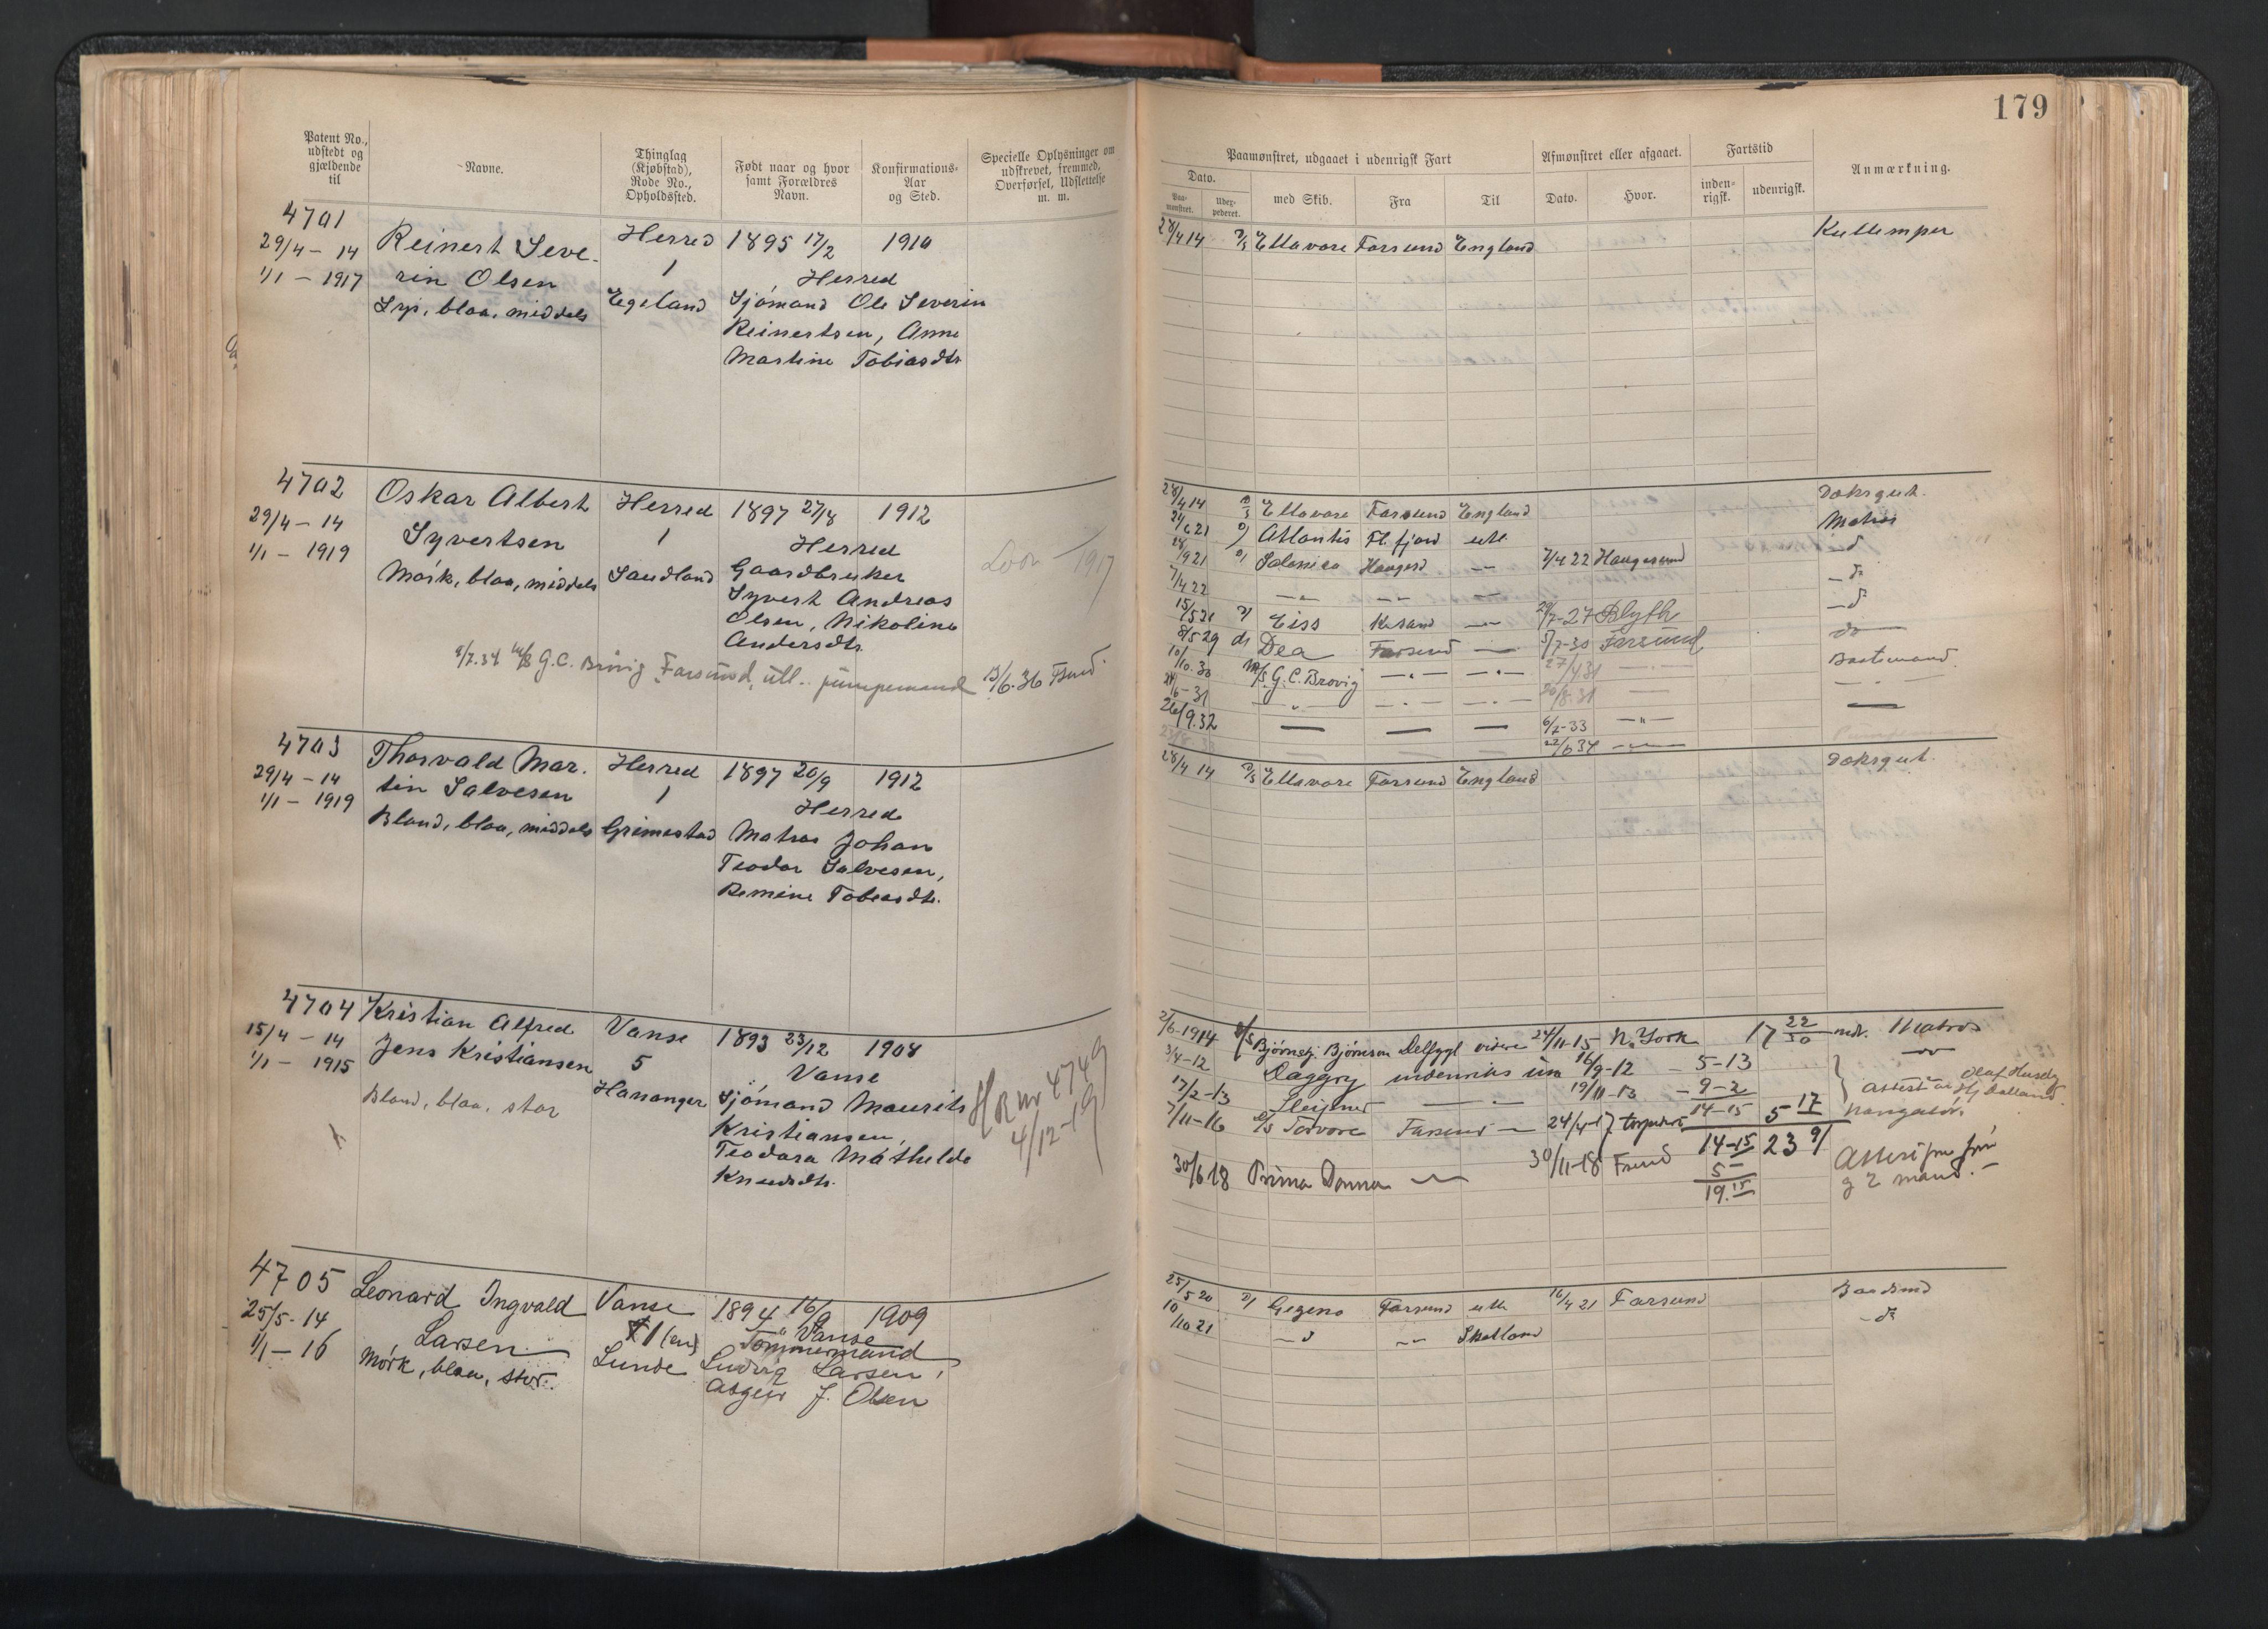 179
Patent No., udstedt og gjældende til
Navne.
Thinglag (Kjøbstad), Rode No., Opholdssted.
Født naar og hvor samt Forældres Navn.
Konfirmations-Aar og Sted.
Specielle Oplysninger om udskrevet, fremmed, Overførsel, Udslettelse m. m.
Paamønstret, udgaaet i udenrigsk Fart
Afmønstret eller afgaaet.
Fartstid
Anmærkning.
Dato.
Paa-mønstret.
Udex-pederet.
med Skib.
Fra
Til
Dato.
Hvor.
inden-rigsk.
udenrigsk.
4701
29/4 - 14
1/1 - 1917
Reinert Seve-
rin Olsen
Lys, blaa, middels
Herred
1
Egeland
1895 17/2 1910
Herred
Sjómand Ole Severin
Reinertsen, Anne
Martine Tobiasdtr
28/4 14 Ellavore Farsund England
Kullemper
4702
29/4 - 14
1/1 - 1919
Oskar Albert
Syvertsen
Mórk, blaa, middels
Herred
1
Saudland
1897 27/8 1912
Herred
Gaardbruker
Syvert Andreas
Olsen, Nikoline
Andersdtr
1917
G.C. Brövig Farsund, utl. pumpemand 13/6.36 Fsund
28/4 14 Ellavore Farsund England Dæksgut.
21 Atlantis Fl. fjord utl. Matros
9 21 Salonica Haugesd — 7/4 22 Haugesund d
7/4 22 — — — d
15/5 21 Eiss K.sand — 29/7-27 Blythe d
8/5 29 ds Dea Farsund — 5/7-30 Farsund do
10/10.30 M/S. G.C. Brovig — — 27/4 31 — Baatsmand
6-31 — — — 20/8.31 —
26/9.32 — — — 6/7-33 —
22/6 34 —
4703
29/4 - 14
1/1 - 1919
Thorvald Mar-
tin Salvesen
Blond, blaa, middels
Herred
1
Grimestad
1897 20/9 1912
Herred
Matros Johan
Teodor Salvesen,
Bemine Tobiasdtr.
28/4 14 Ellavore Farsund England
Dæksgut.
4704
15/4 - 14
1/1 - 1915
Kristian Alfred
Jens Kristiansen
Blond, blaa, stor
Vanse
5
Hananger
1893 23/12 1908
Vanse
Sjómand Maurits
Kristiansen,
Teodora Mathilde
Knudsdtr.
HR nr 4749
4/12-19
2/6-1914 Bjørnstj. Bjørnson Delfzyl videre 24/11-15 N. York 17 22/30 mdr. Matros
3/4-12 Daggry indenriks 16/9-12 - 5-13
17/2-13 Sleipner — 19/11-13 - 9-2
14-15 5 17
7/11-16 Torvore Farsund — 24/4-17 torpedert
14-15 23 9/
30/6 18 Prima Donna — 30/11-18 Fsund 5 -
19.15
Attest
g 2 mand. -
4705
25/5 - 14
1/1 - 16
Leonard Ingvald
Larsen
Mórk, blaa, stor.
Vanse
1 (en)
Lunde
1894 16/9 1909
Vanse
Tömmermand
Ludvig Larsen,
Asgur J. Olsen
25/5 20 Gezena Farsund utl. 16/4 21 Farsund
10/10 21 — — Skotland